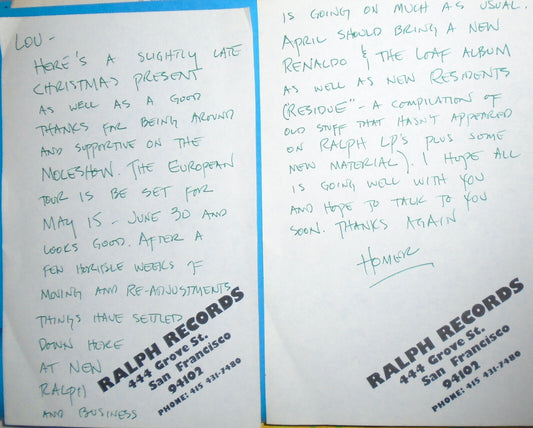 LOU -
HERE'S A SLIGHTLY LATE
CHRISTMAS PRESENT
AS WELL AS A GOOD
THANKS FOR BEING AROUND
AND SUPPORTIVE ON THE
MOLESHOW. THE EUROPEAN
TOUR IS BE SET FOR
MAY 15 - JUNE 30 AND
LOOKS GOOD. AFTER A
FEW HORRIBLE WEEKS OF
MOVING AND RE-ADJUSTMENTS
THINGS HAVE SETTLED
DOWN HERE
AT NEW
RALPH
AND BUSINESS
RALPH RECORDS
444 Grove St.
San Francisco
94102
PHONE: 415 431-7480
IS GOING ON MUCH AS USUAL.
APRIL SHOULD BRING A NEW
RENALDO & THE LOAF ALBUM
AS WELL AS NEW RESIDENTS
(RESIDUE" - A COMPILATION OF
OLD STUFF THAT HASN'T APPEARED
ON RALPH LP'S PLUS SOME
NEW MATERIAL). I HOPE ALL
IS GOING WELL WITH YOU
AND HOPE TO TALK TO YOU
SOON. THANKS AGAIN
HOMER
RALPH RECORDS
444 Grove St.
San Francisco
94102
PHONE: 415 431-7480